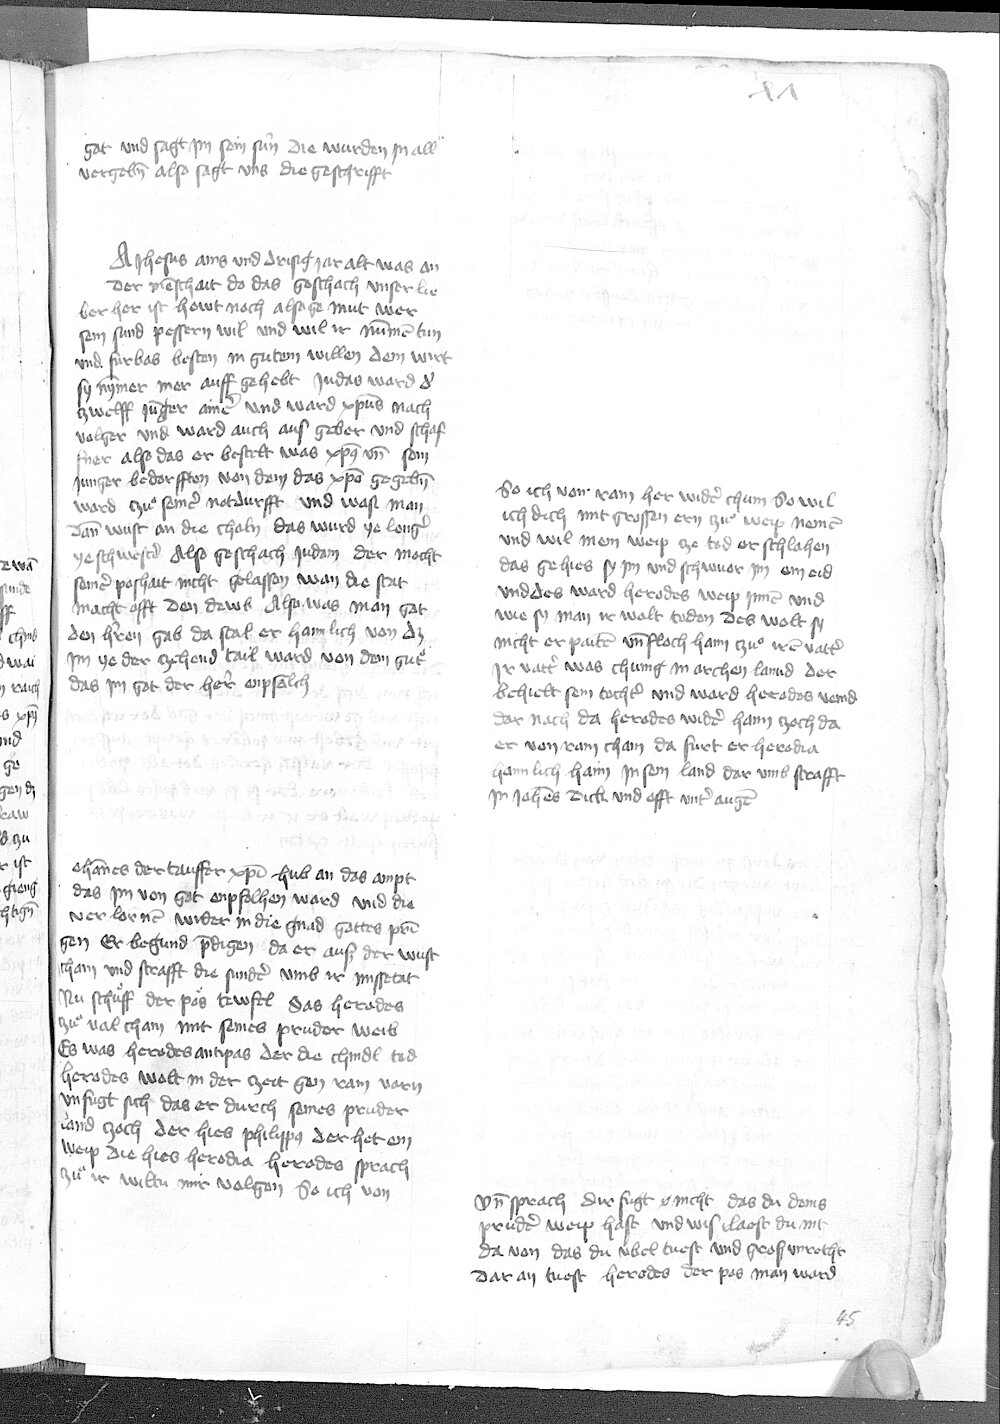 got und sagt im sein sun̄ die wurden in all
vergebn̄ also sagt uns die geschrifft
A Jhesus ains und drisig jar alt was an
der mēschait do das geschach unser lie
ber her ist hewt noch also ge mut wer
sein sund pessern wil und wil ir nūmē tun
und furbas besten in gutem willen dem wirt
sy nȳmer mer auff gehebt Judas ward d͛
zwelff jūger ainē und ward xpūs nach
volger und ward auch aus geber und schaf
fner also das er bestelt was xpō vn̄ sein
junger bedorfften von dem das xpō gegebn̄
ward czu seinē notdurfft und was man
dan̄ must an die chatn̄ das wurd ye lenger
ye schwerer Also geschach Judam der mocht
seinē poshait nicht gelassen wan die stat
macht offt den dewb Also was man got
den hēren gab da stal er haimlich von dz
im ye der zehend tail ward von dem gut
das im got der her enpfalch
ohānes der tauffer xpī hub an das ampt
das im von got enpfolhen ward und die
verlornē wider in die gnad gottes prin
gen Er begund p̄digen da er aus der wust
cham und strafft die sunder umb ir missetat
Nu schuff der pos tewfel Das herodes
czu val cham mit seines pruder weib
Es was herodes antipas der die chindl tod
herodes wolt in der zeit gen ram varn
vn fugt sich das er durch seines pruder
land zoch der hies philippus der het ein
weip die hies herodia herodes sprach
czu ir wiltu mir volgen So ich von
So ich von ram her wider chum So wil
ich dich mit grossen ern czu weip nemē
und wil mein weip cze tod erschlahen
das gehies sy im und schwuor im ein eid
und des ward herodes weip innē und
wie sy man ir wolt toden Des wolt sy
nicht er paitē vn̄ floch haim czu irē vater
Ir vater was chunig in archen lannd der
behielt sein tochter und ward herodes veind
dar nach da herodes wider haim zoch da
er von ram cham da furt er herodia
haimlich haim in sein land dar umb strafft
in Johēs dick und offt unter augē
Vn̄ sprach dir fugt nicht das du deins
pruder weip hast und wis laest du nit
da von das du ubel tuest und gross unrecht
dar an tuest herodes der pos man ward
45